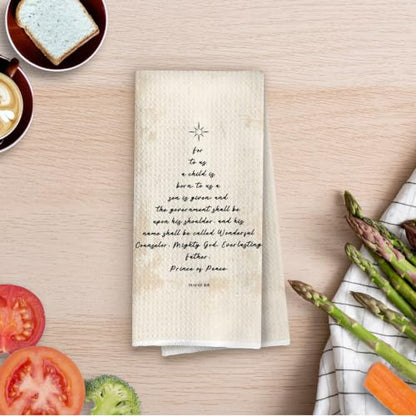 for
to us
a child is
born to us a
son is given and
the government shall be
upon his shoulder, and his
name shall be called Wonderful
Counselor, Mighty God, Everlasting
Father,
Prince of Peace
ISAIAH 9:6